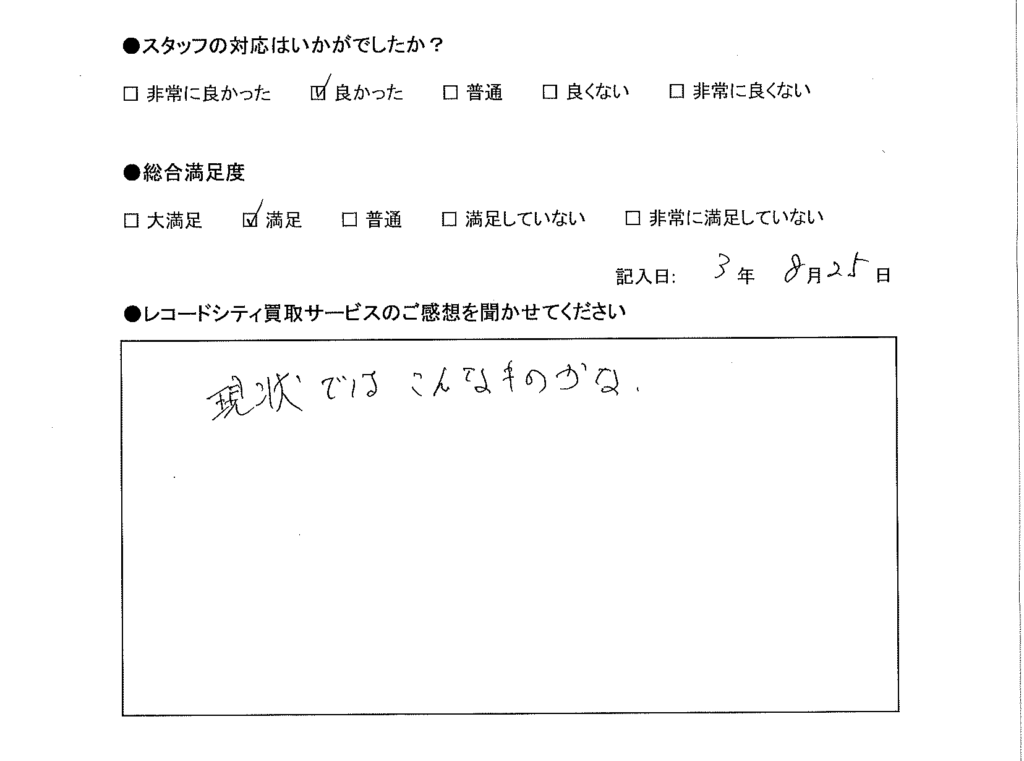 ●スタッフの対応はいかがでしたか?
□ 非常に良かった ☑ 良かった □ 普通 □ 良くない □ 非常に良くない
●総合満足度
□ 大満足 ☑ 満足 □ 普通 □ 満足していない □ 非常に満足していない
記入日: 3 年 8月25日
●レコードシティ買取サービスのご感想を聞かせてください
現状では こんなものかな.